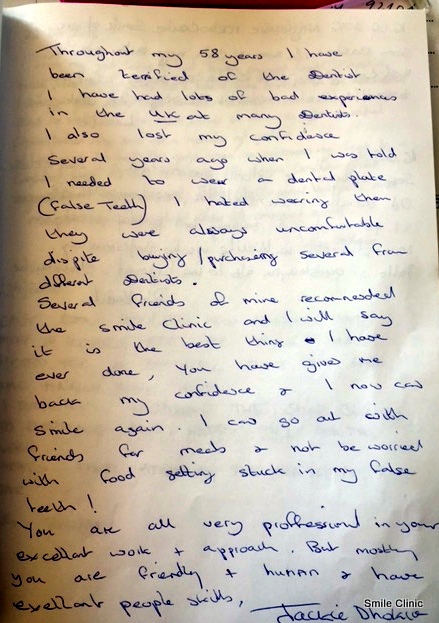 Throughout my 58 years I have
been terrified of the Dentist
I have had lots of bad experiences
in the UK at many Dentists.
I also lost my confidence
several years ago when I was told
I needed to wear a dental plate
(false Teeth) I hated wearing them
they were always uncomfortable
dispite buying/purchasing several from
different Dentists.
Several friends of mine recommended
the smile Clinic and I will say
it is the best thing I have
ever done, You have given me
back my confidence & I now can
smile again. I can go out with
friends for meals & not be worried
with food getting stuck in my false
teeth!
You are all very proffessional in your
excellent work + approach. But mostly
you are friendly + human & have
exellent people skills,
Jackie
Smile Clinic